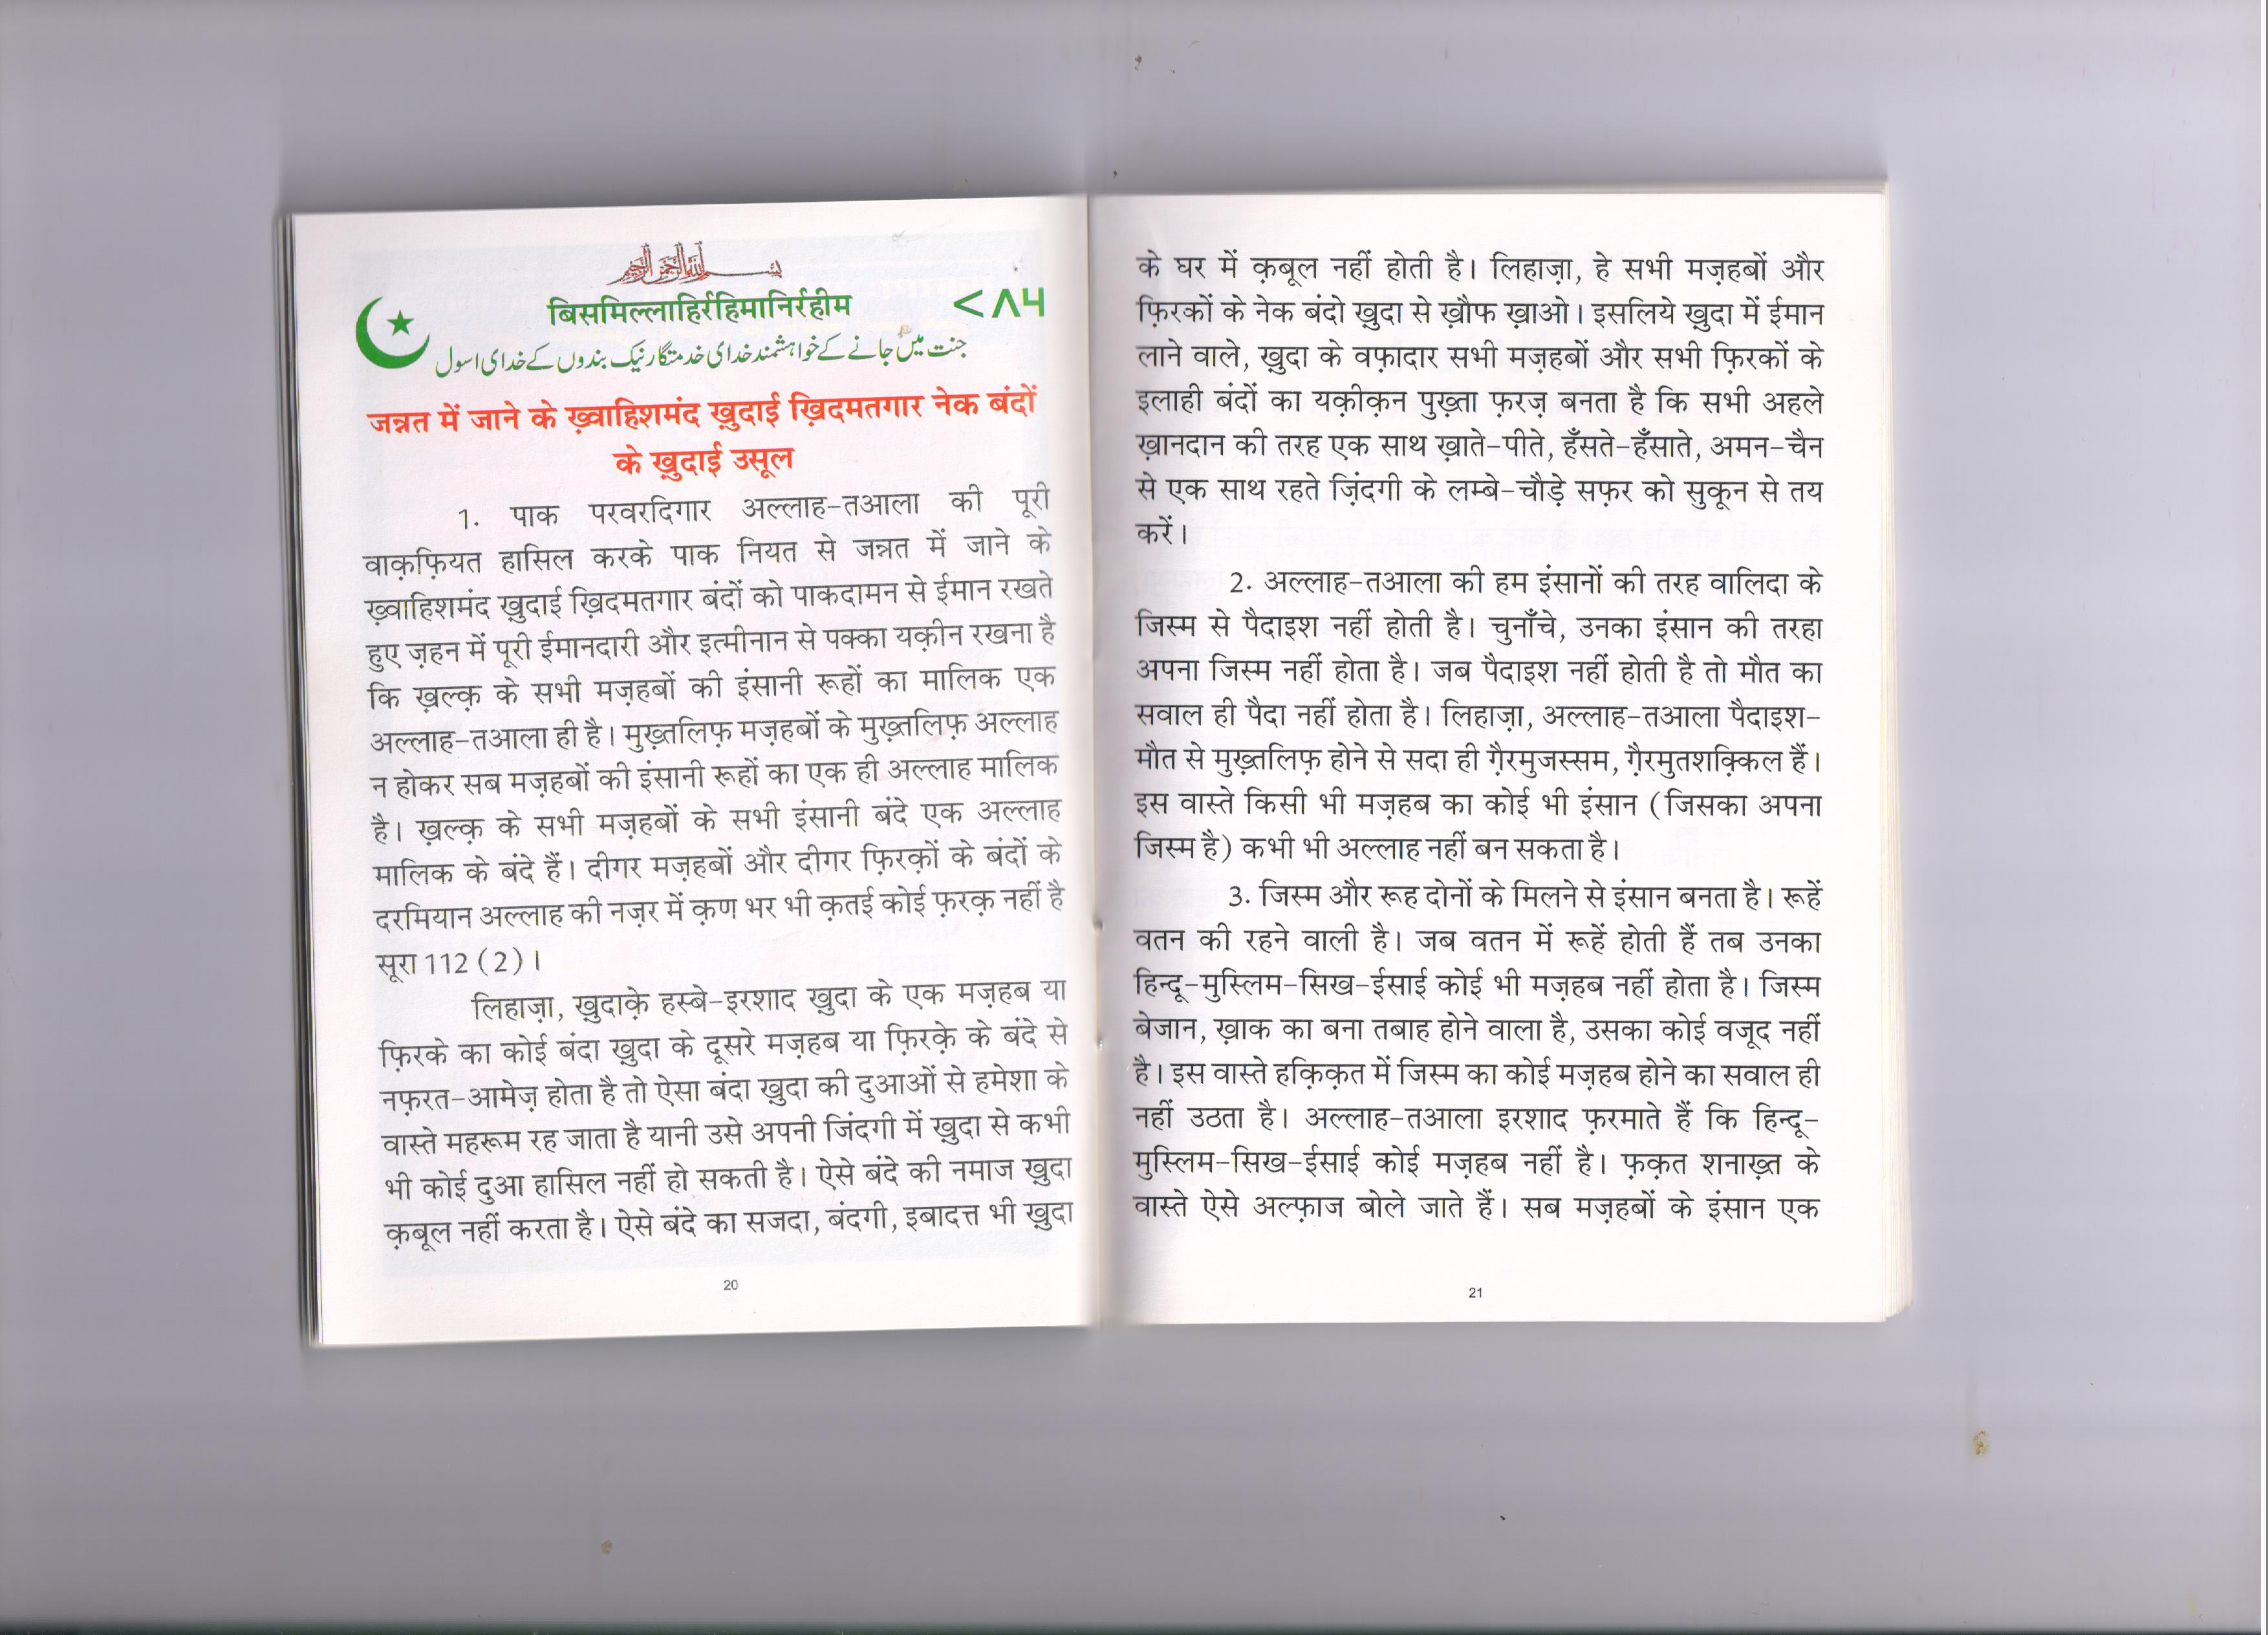 بسم الله الرحمن الرحيم
बिसमिल्लाहिर्रहिमानिर्रहीम
<ΛЧ
جنت میں جانے کے خواہشمند خدای خدمتگار نیک بندوں کے خدای اسول
जन्नत में जाने के ख़्वाहिशमंद ख़ुदाई ख़िदमतगार नेक बंदों
के ख़ुदाई उसूल
1. पाक परवरदिगार अल्लाह-तआला की पूरी
वाक़फ़ियत हासिल करके पाक नियत से जन्नत में जाने के
ख़्वाहिशमंद ख़ुदाई ख़िदमतगार बंदों को पाकदामन से ईमान रखते
हुए ज़हन में पूरी ईमानदारी और इत्मीनान से पक्का यक़ीन रखना है
कि ख़ल्क़ के सभी मज़हबों की इंसानी रूहों का मालिक एक
अल्लाह-तआला ही है। मुख़्तलिफ़ मज़हबों के मुख़्तलिफ़ अल्लाह
न होकर सब मज़हबों की इंसानी रूहों का एक ही अल्लाह मालिक
है। ख़ल्क़ के सभी मज़हबों के सभी इंसानी बंदे एक अल्लाह
मालिक के बंदे हैं। दीगर मज़हबों और दीगर फ़िरक़ों के बंदों के
दरमियान अल्लाह की नज़र में क़ण भर भी क़तई कोई फ़रक़ नहीं है
सूरा 112 (2)।
लिहाज़ा, ख़ुदाक़े हस्बे-इरशाद ख़ुदा के एक मज़हब या
फ़िरके का कोई बंदा ख़ुदा के दूसरे मज़हब या फ़िरक़े के बंदे से
नफ़रत-आमेज़ होता है तो ऐसा बंदा ख़ुदा की दुआओं से हमेशा के
वास्ते महरूम रह जाता है यानी उसे अपनी जिंदगी में ख़ुदा से कभी
भी कोई दुआ हासिल नहीं हो सकती है। ऐसे बंदे की नमाज ख़ुदा
क़बूल नहीं करता है। ऐसे बंदे का सजदा, बंदगी, इबादत्त भी ख़ुदा
20
के घर में क़बूल नहीं होती है। लिहाज़ा, हे सभी मज़हबों और
फ़िरकों के नेक बंदो ख़ुदा से ख़ौफ ख़ाओ। इसलिये ख़ुदा में ईमान
लाने वाले, ख़ुदा के वफ़ादार सभी मज़हबों और सभी फ़िरकों के
इलाही बंदों का यक़ीक़न पुख़्ता फ़रज़ बनता है कि सभी अहले
ख़ानदान की तरह एक साथ ख़ाते-पीते, हँसते-हँसाते, अमन-चैन
से एक साथ रहते ज़िंदगी के लम्बे-चौड़े सफ़र को सुकून से तय
करें।
2. अल्लाह-तआला की हम इंसानों की तरह वालिदा के
जिस्म से पैदाइश नहीं होती है। चुनाँचे, उनका इंसान की तरहा
अपना जिस्म नहीं होता है। जब पैदाइश नहीं होती है तो मौत का
सवाल ही पैदा नहीं होता है। लिहाज़ा, अल्लाह-तआला पैदाइश-
मौत से मुख़्तलिफ़ होने से सदा ही ग़ैरमुजस्सम, ग़ैरमुतशक़्किल हैं।
इस वास्ते किसी भी मज़हब का कोई भी इंसान (जिसका अपना
जिस्म है) कभी भी अल्लाह नहीं बन सकता है।
3. जिस्म और रूह दोनों के मिलने से इंसान बनता है। रूहें
वतन की रहने वाली है। जब वतन में रूहें होती हैं तब उनका
हिन्दू-मुस्लिम-सिख-ईसाई कोई भी मज़हब नहीं होता है। जिस्म
बेजान, ख़ाक का बना तबाह होने वाला है, उसका कोई वजूद नहीं
है। इस वास्ते हक़िक़त में जिस्म का कोई मज़हब होने का सवाल ही
नहीं उठता है। अल्लाह-तआला इरशाद फ़रमाते हैं कि हिन्दू-
मुस्लिम-सिख-ईसाई कोई मज़हब नहीं है। फ़क़त शनाख़्त के
वास्ते ऐसे अल्फ़ाज बोले जाते हैं। सब मज़हबों के इंसान एक
21